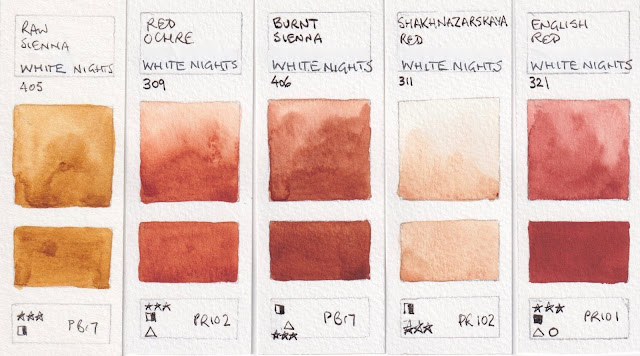 RAW
SIENNA
WHITE NIGHTS
405
PBr7
RED
OCHRE
WHITE NIGHTS
309
PR102
BURNT
SIENNA
WHITE NIGHTS
406
PBr7
SHAKHNAZARSKAYA
RED
WHITE NIGHTS
311
PR102
ENGLISH
RED
WHITE NIGHTS
321
PR101